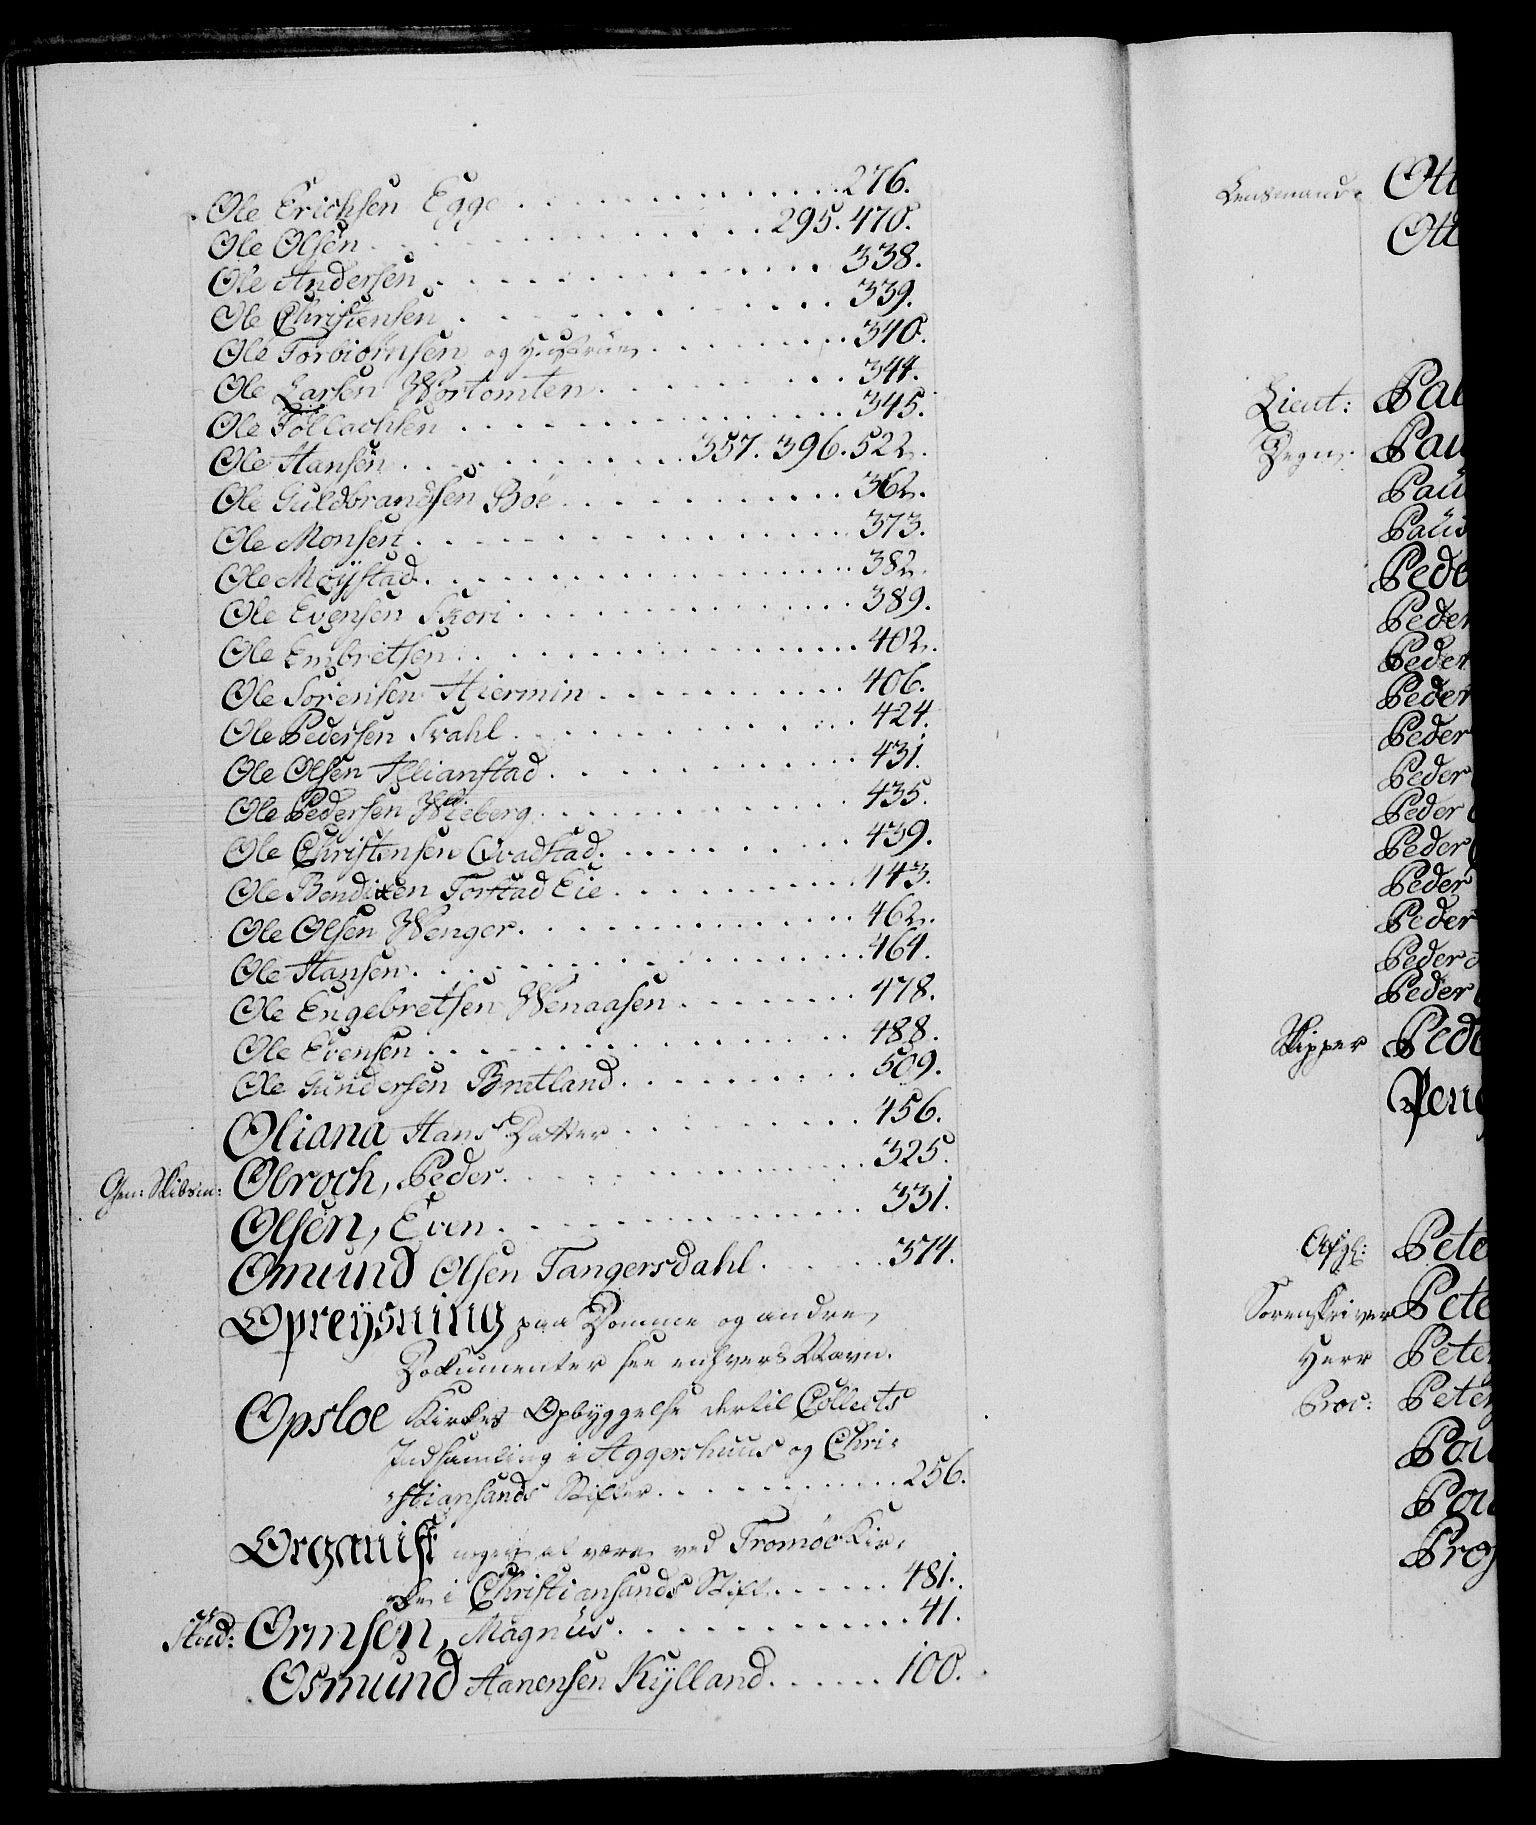 Ole Erichsen Egge . . . . . . . . . . . . 276.
Ole Olsen . . . . . . . . . . . . 295. 470.
Ole Andersen . . . . . . . . . . . . 338.
Ole Christensen . . . . . . . . . . . . 339.
Ole Torbiörnsen og Hustrue . . . . . . . 340.
Ole Larsen Wortomten . . . . . . . . 344.
Ole Tollachsen . . . . . . . . . . . . 345.
Ole Hansen . . . . . . . . . . 357. 396. 522.
Ole Guldbrandsen Boe . . . . . . . . . 362.
Ole Monsen . . . . . . . . . . . . 373.
Ole Moÿstad . . . . . . . . . . . . 382.
Ole Evensen Skori . . . . . . . . . . 389.
Ole Embretsen . . . . . . . . . . . . 402.
Ole Sörensen Hiermin . . . . . . . . 406.
Ole Pedersen Svahl . . . . . . . . . . 424.
Ole Olsen Hlianstad . . . . . . . . . 431.
Ole Pedersen Wieberg . . . . . . . . . 435.
Ole Christensen Qvadstad . . . . . . . 439.
Ole Bendixen Torstad Eie . . . . . . . 443.
Ole Olsen Wenger . . . . . . . . . . 462.
Ole Hansen . . . . . . . . . . . . 464.
Ole Engebretsen Wenaasen . . . . . . . 478.
Ole Evensen . . . . . . . . . . . . 488.
Ole Gundersen Bretland . . . . . . . . 509.
Oliana Hans Datter . . . . . . . . . . 456.
Olroch, Peder . . . . . . . . . . . . 325.
Olsen, Even . . . . . . . . . . . . 331.
Omund Olsen Tangersdahl . . . . . . 374.
Opreysning paa Domme og andre
Dokumenter see enhvers Navn.
Opsloe Kirkes Opbyggelse dertil Collects
Indsamling i Aggershuus og Chri-
stiansands Stifter . . . . . . . . . . 256.
Organist ingen at være ved Tromöe Kir-
ke i Christiansands Stift . . . . . . 481.
Stud: Ormsen, Magnus . . . . . . . . . 41.
Osmund Aanensen Kÿlland . . . . . . 100.
Lensmand Ott
Ott
Lieut: Pal
Degn Pau
Pau
Paus
Pede
Peder
Peder
Peder
Peder
Peder
Peder
Peder
Peder
Peder
Peder
Peder
Skipper Pede
Peng
Pete
Sorenskriver Pete
Herr Peter
Proc: Peter
Pou
Pou